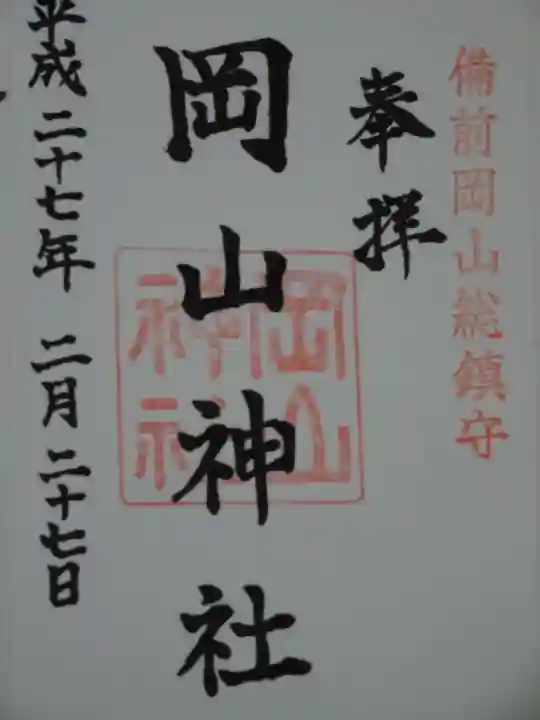 備前岡山総鎮守
奉拝
岡山神社
岡山
神社
平成二十七年 二月二十七日